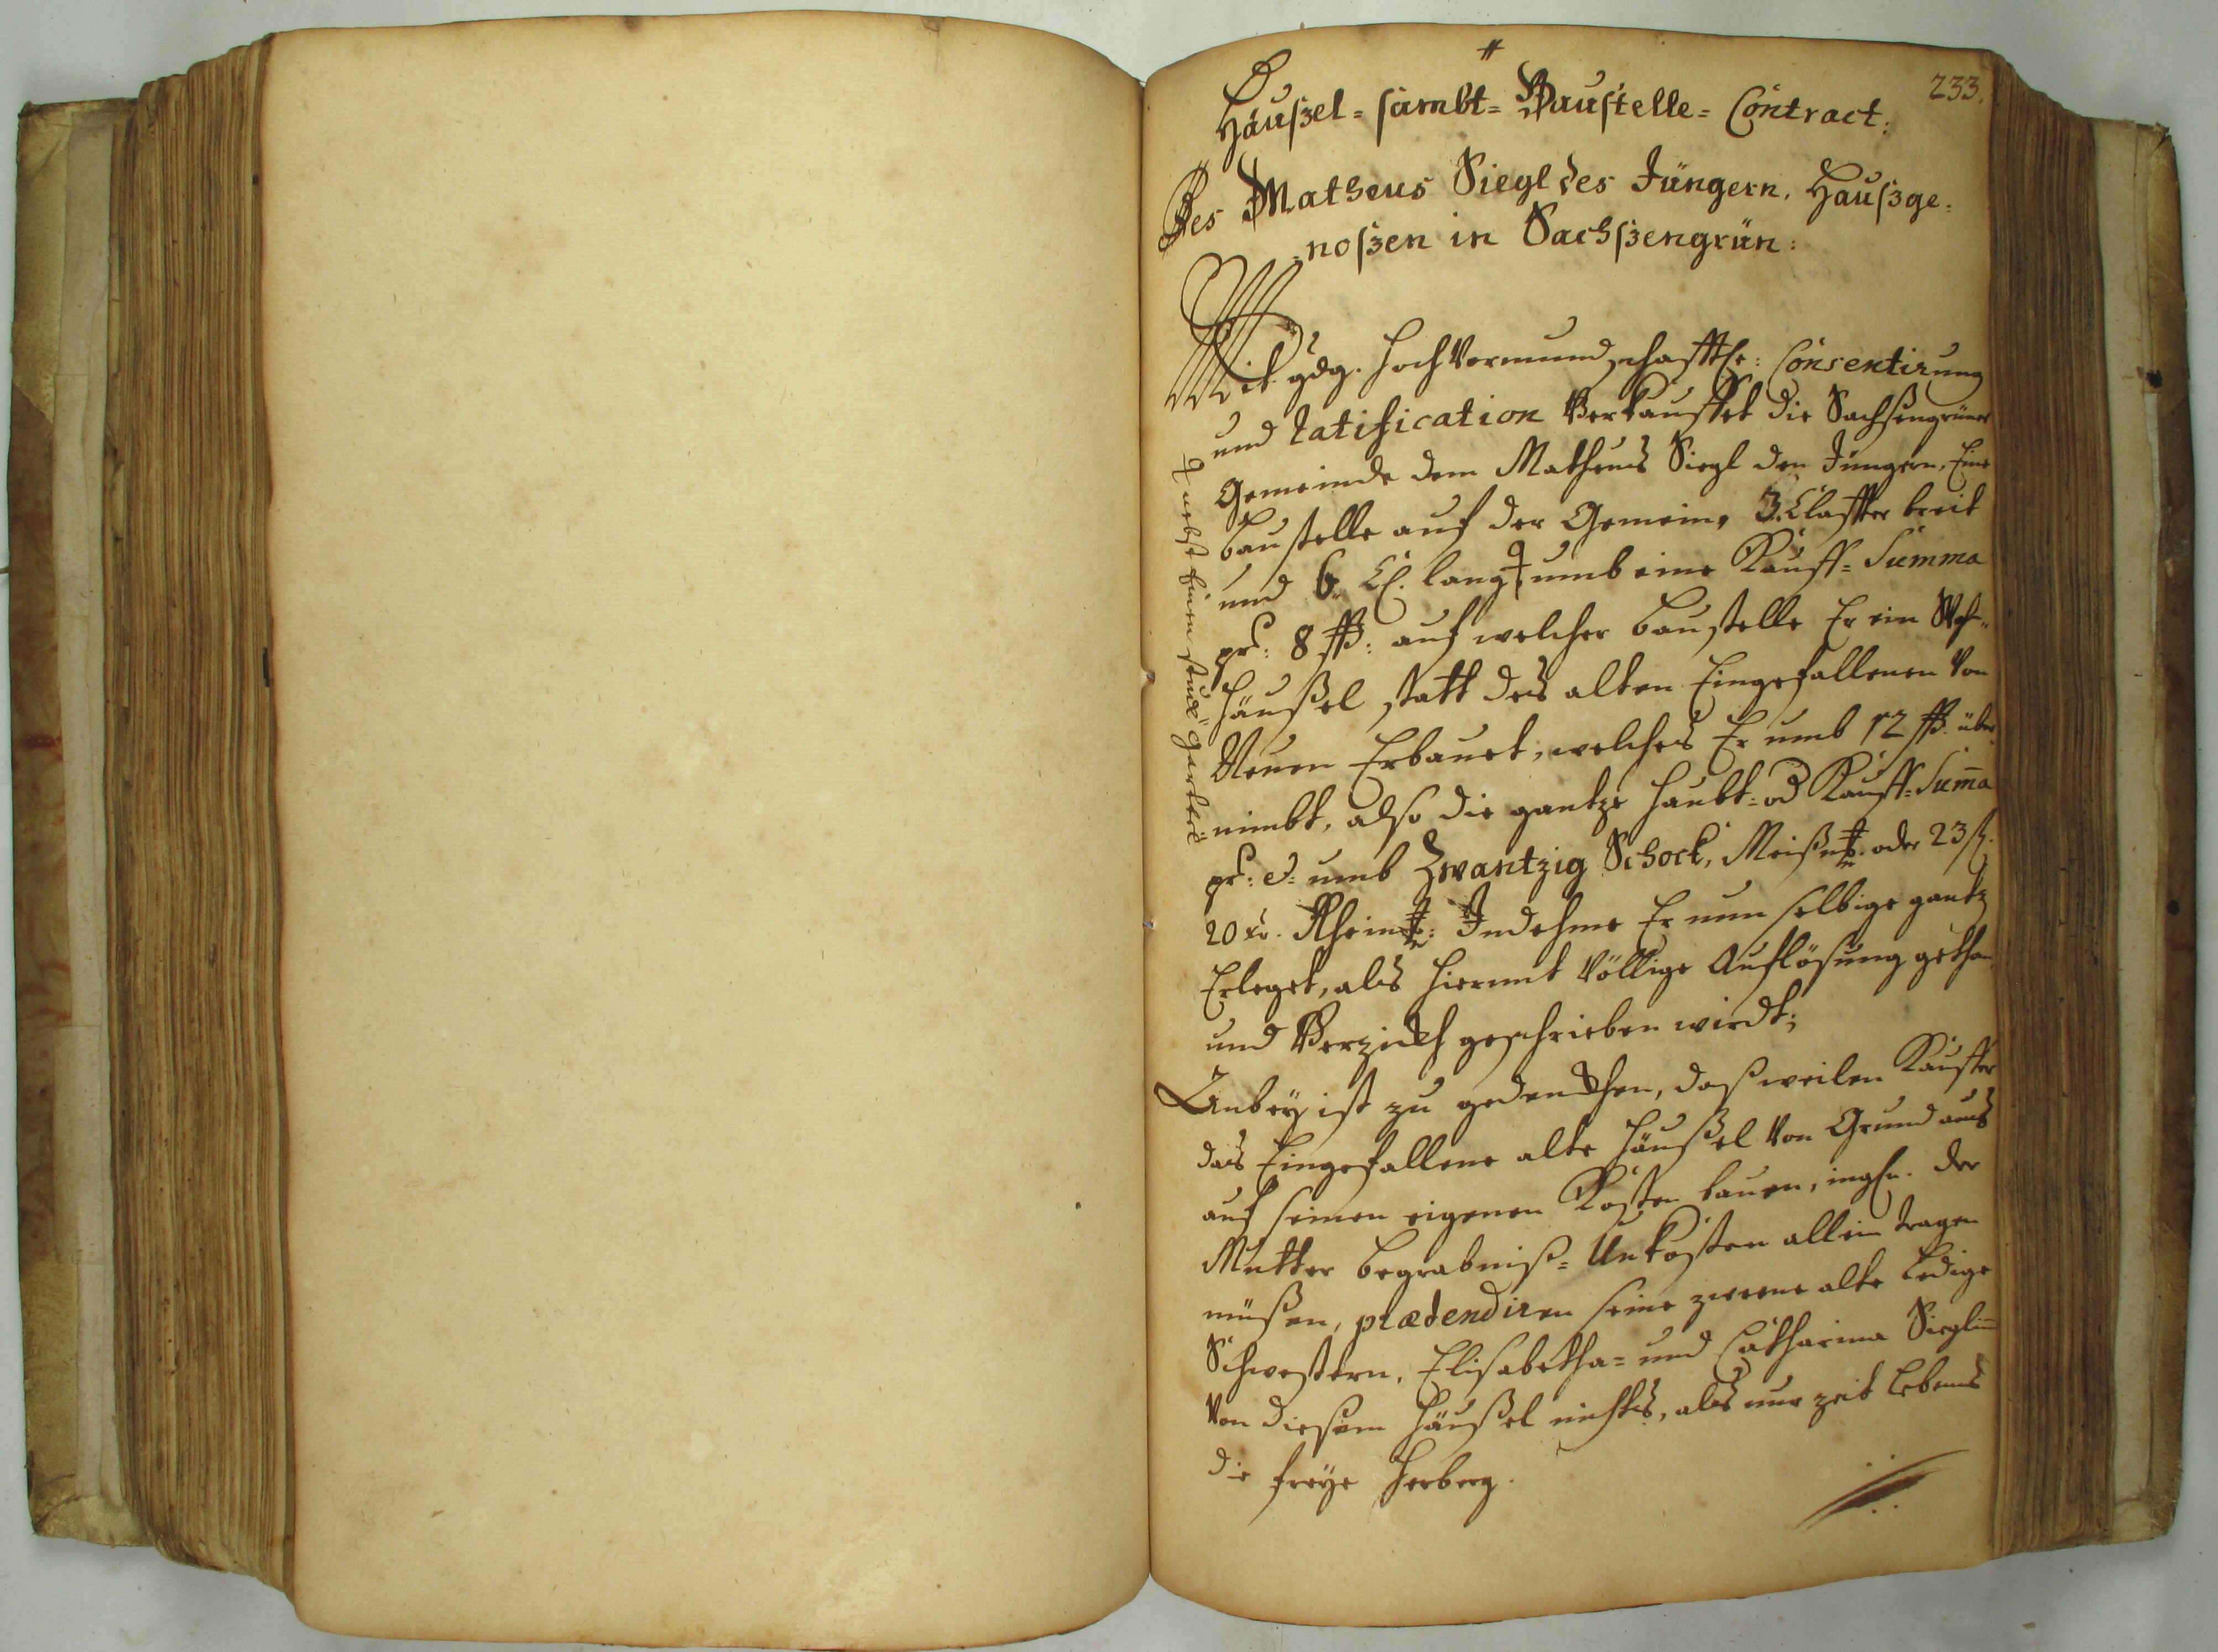 233.
Häußel= sambt= Baustelle= Contract:
Des Matheus Siegl des Jüngern, Haußge=
=noßen in Sachßengrün:
Mit gdg. hochVormundschafftle: Consentirung
und ratification Verkauffet die Sachsengrüner
Gemeinde dem Matheus Siegl den Jüngern, Eine
baustelle auf der Gemein, 3. Claffter breit
und 6. Cl. lang umb eine Kauff= Summa
pr: 8 ßß: auf welcher baustelle Er ein
häußel statt des alten Eingefallenen Von
Neuen Erbauet, welches Er umb 12 ßß. über=
nimbt, also die gantze haubt= od Kauff= Suma
pr: umb Zwantzig Schock, Meißn. oder 23 fl.
20 xr. Rhein: Indehme Er nun selbige gantz
Erleget, als hiermit Völlige Auflösung gethan,
und Verzicht geschrieben wirdt;
Anbey ist zu gedenckhen, daß weilen Kauffer
das Eingefallene alte häußel Von Grund aus
auf seinen eigenen Kosten bauen, ingln. der
Mutter begrabniß= Unkosten allein tragen
müßen, prætendiren seine zweene alte Ledige
Schwestern, Elisabetha= und Catharina Sieglin
Von diesem häußel nichts, als nur zeit Lebens
die freye herberg.
nebst einen stück gärtl